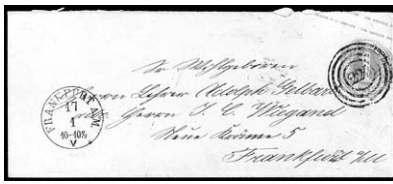 FRANKFURT A.M.
17
1
10-10½
V
Sr Wohlgeboren
Herrn Lehrer Adolph
Herrn J. C. Wiegand
Neue Kräme 5
Frankfurt a/M